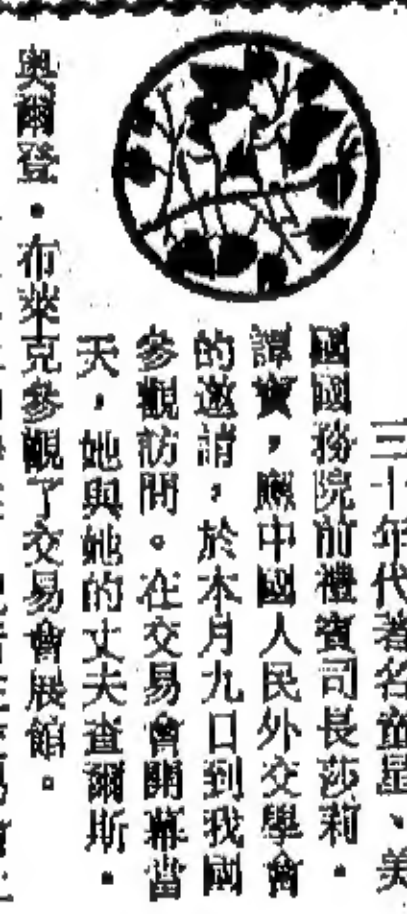 三十年代著名童星、美
國國務院前禮賓司長莎莉·
譚寶，應中國人民外交學會
的邀請，於本月九日到我國
參觀訪問。在交易會開幕當
天，她與她的丈夫查爾斯·
奧爾登·布萊克參觀了交易會展館。